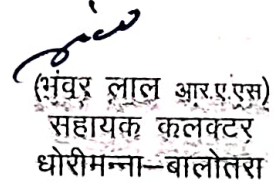 (भंवर लाल आर.ए.एस)
सहायक कलक्टर
धोरीमन्ना–बालोतरा